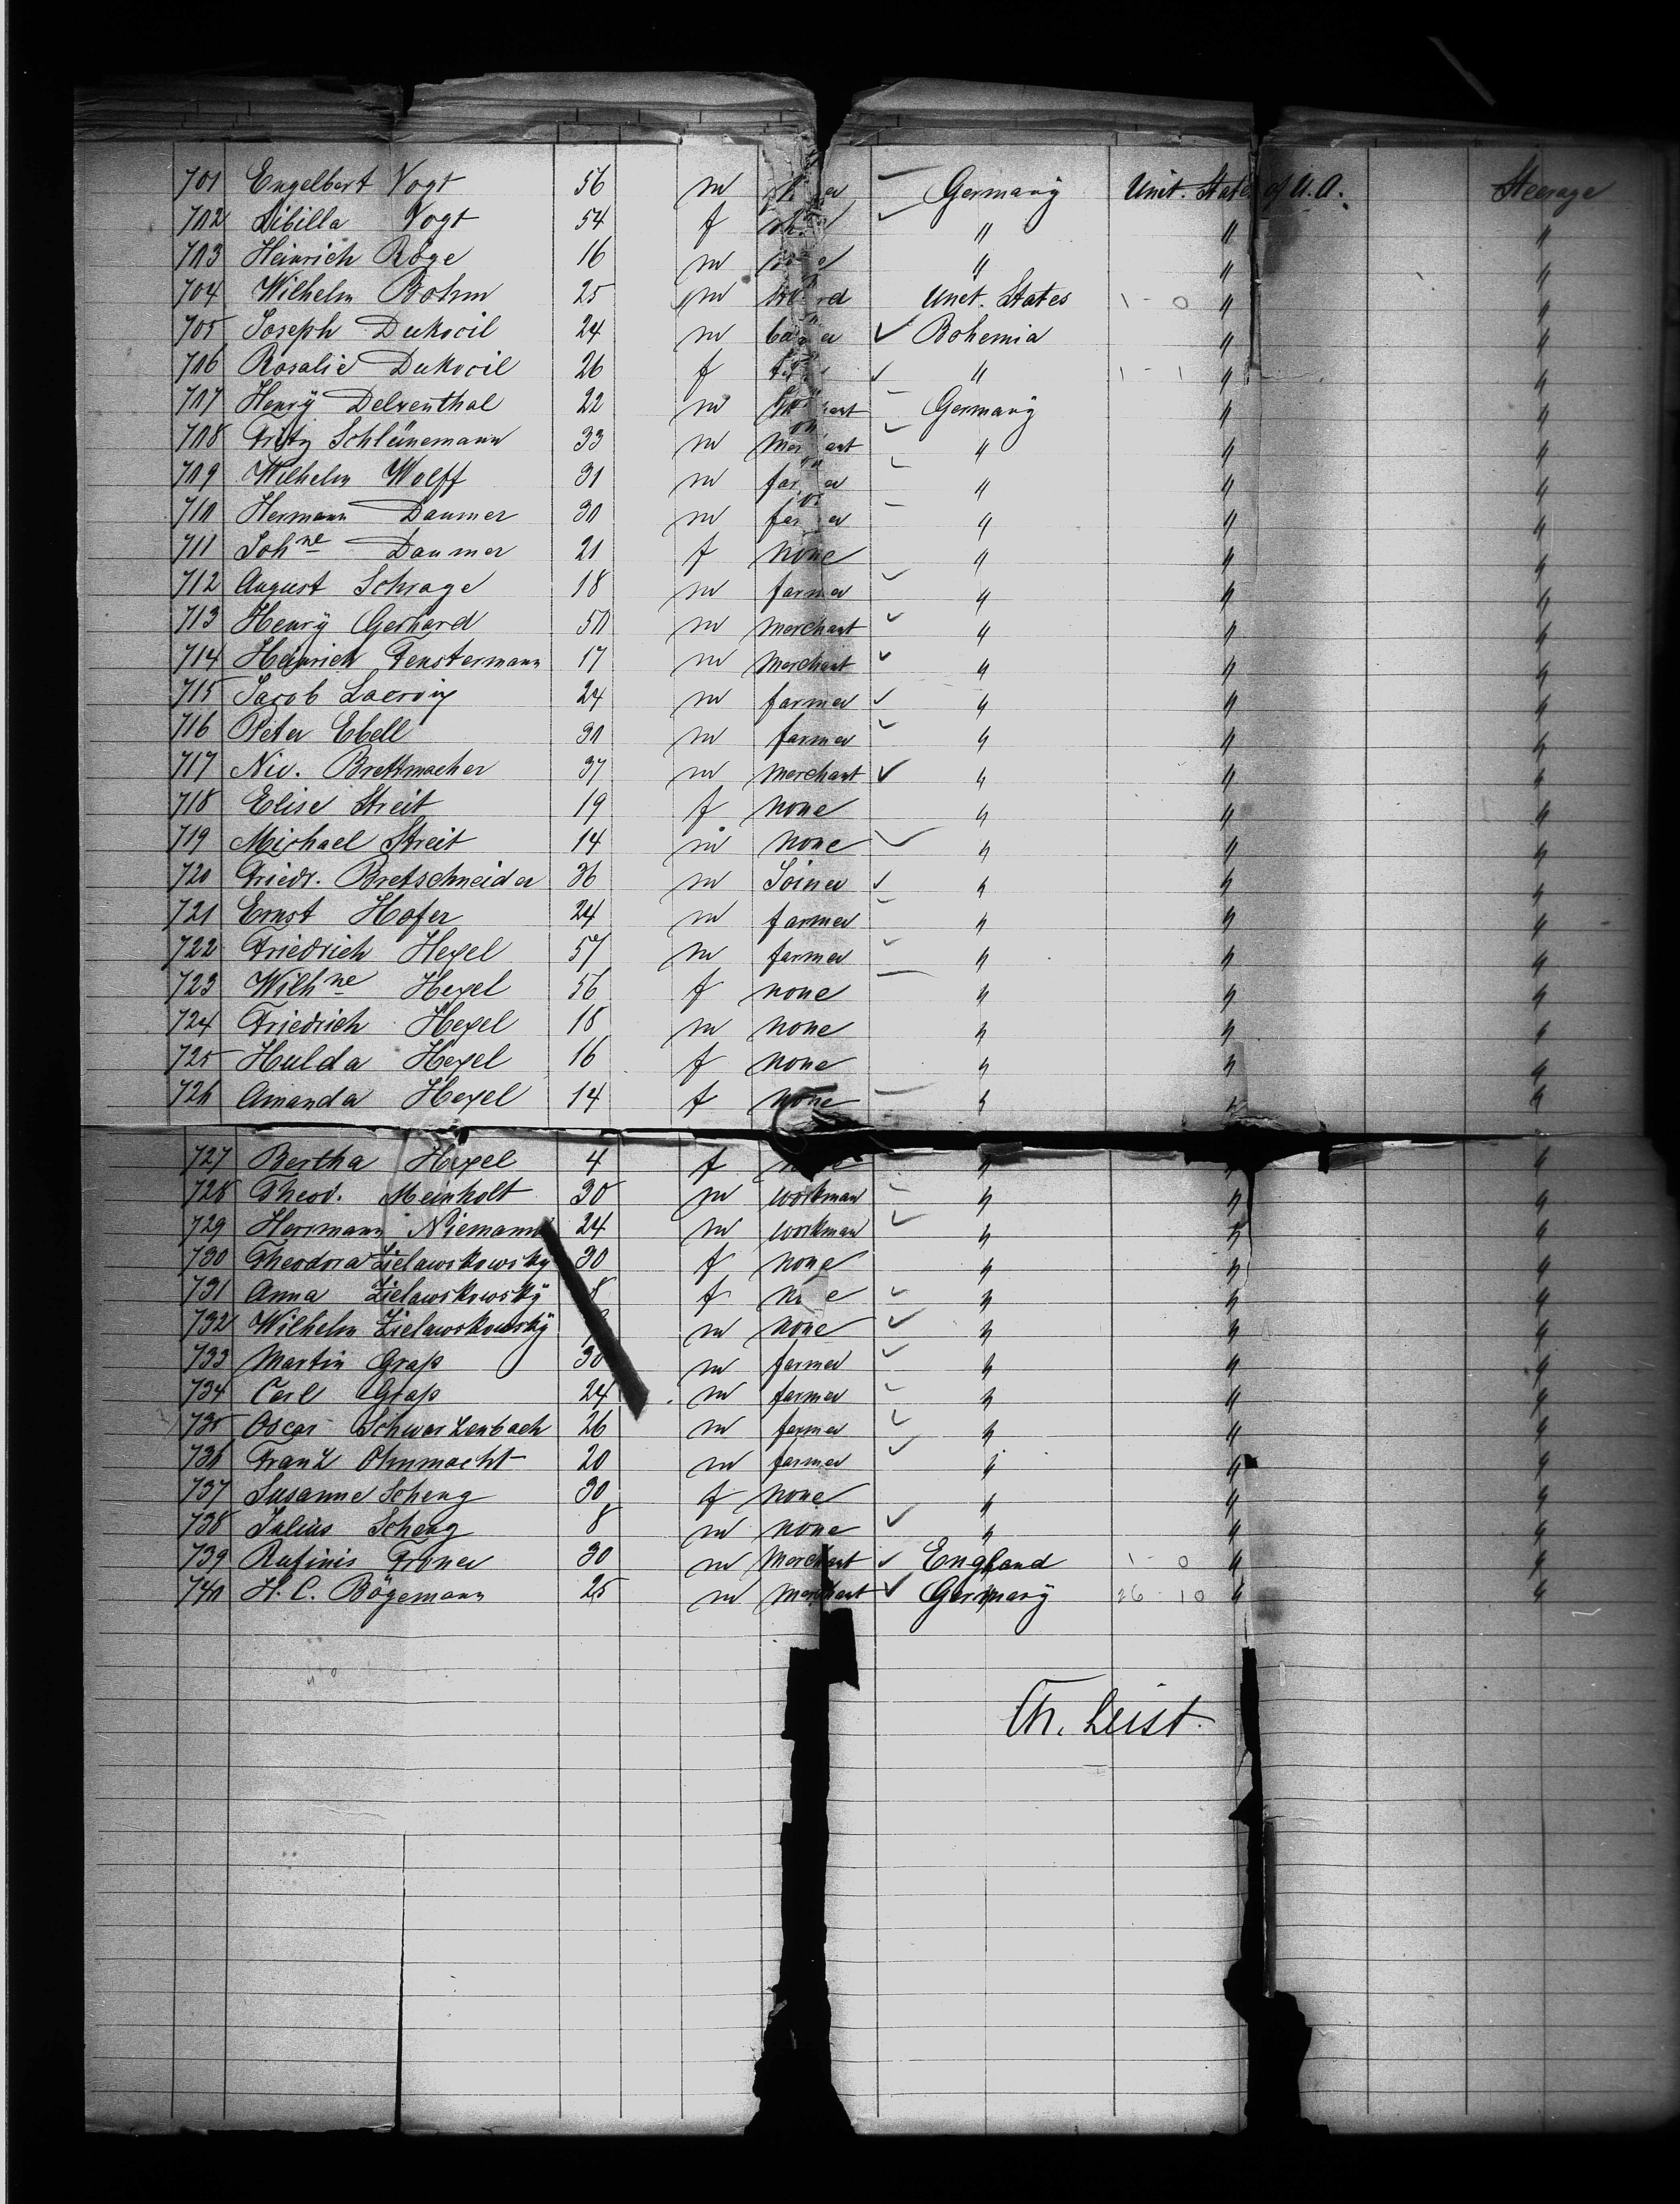 701 Engelbert Vogt 56 m Germany Unit. States of U. A. Steerage
702 Sibilla Vogt 54 f " " "
703 Heinrich Röge 16 m " " "
704 Wilhelm Bohm 25 m Unit. States 1 - 0 " "
705 Joseph Dukocil 24 m Bohemia " "
706 Rosalie Dukocil 26 f " 1 - 1 " "
707 Henry Delventhal 22 m Germany " "
708 Fritz Schlünemann 33 m merchant " " "
709 Wilhelm Wolff 31 m farmer " " "
710 Hermann Daumer 30 m farmer " " "
711 Johne Daumer 21 f none " " "
712 August Schrage 18 m farmer " " "
713 Henry Gerhard 50 m merchant " " "
714 Heinrich Fenstermann 17 m merchant " " "
715 Jacob 24 m farmer " " "
716 Peter Ebell 30 m farmer " " "
717 Nic. Brettmacher 37 m merchant " " "
718 Elise Streit 19 f none " " "
719 Michael Streit 14 m none " " "
720 Friedr. Bretschneider 36 m Joiner " " "
721 Ernst Hofer 24 m farmer " " "
722 Friedrich Hexel 57 m farmer " " "
723 Wilhne Hexel 56 f none " " "
724 Friedrich Hexel 18 m none " " "
725 Hulda Hexel 16 f none " " "
726 Amanda Hexel 14 f none " " "
727 Bertha Hexel 4 f " " "
728 Theod. Meinholt 30 m workman " " "
729 Herrmann Niemann 24 m workman " " "
730 Theodora Zielawskowsky 30 f none " " "
731 Anna Zielawskowsky 8 f none " " "
732 Wilhelm Zielawskowsky m none " " "
733 Martin Graß 30 m farmer " " "
734 Carl Graß 24 m farmer " " "
735 Oscar Schwarzenbach 26 m farmer " " "
736 Franz Ohnmacht 20 m farmer " " "
737 Susanne Scheng 30 f none " " "
738 Julius Scheng 8 m none " " "
739 Rufinis Froner 30 m merchant England 1 - 0 " "
740 H. C. Bögemann 25 m merchant Germany 26 - 10 " "
Th. Leist.